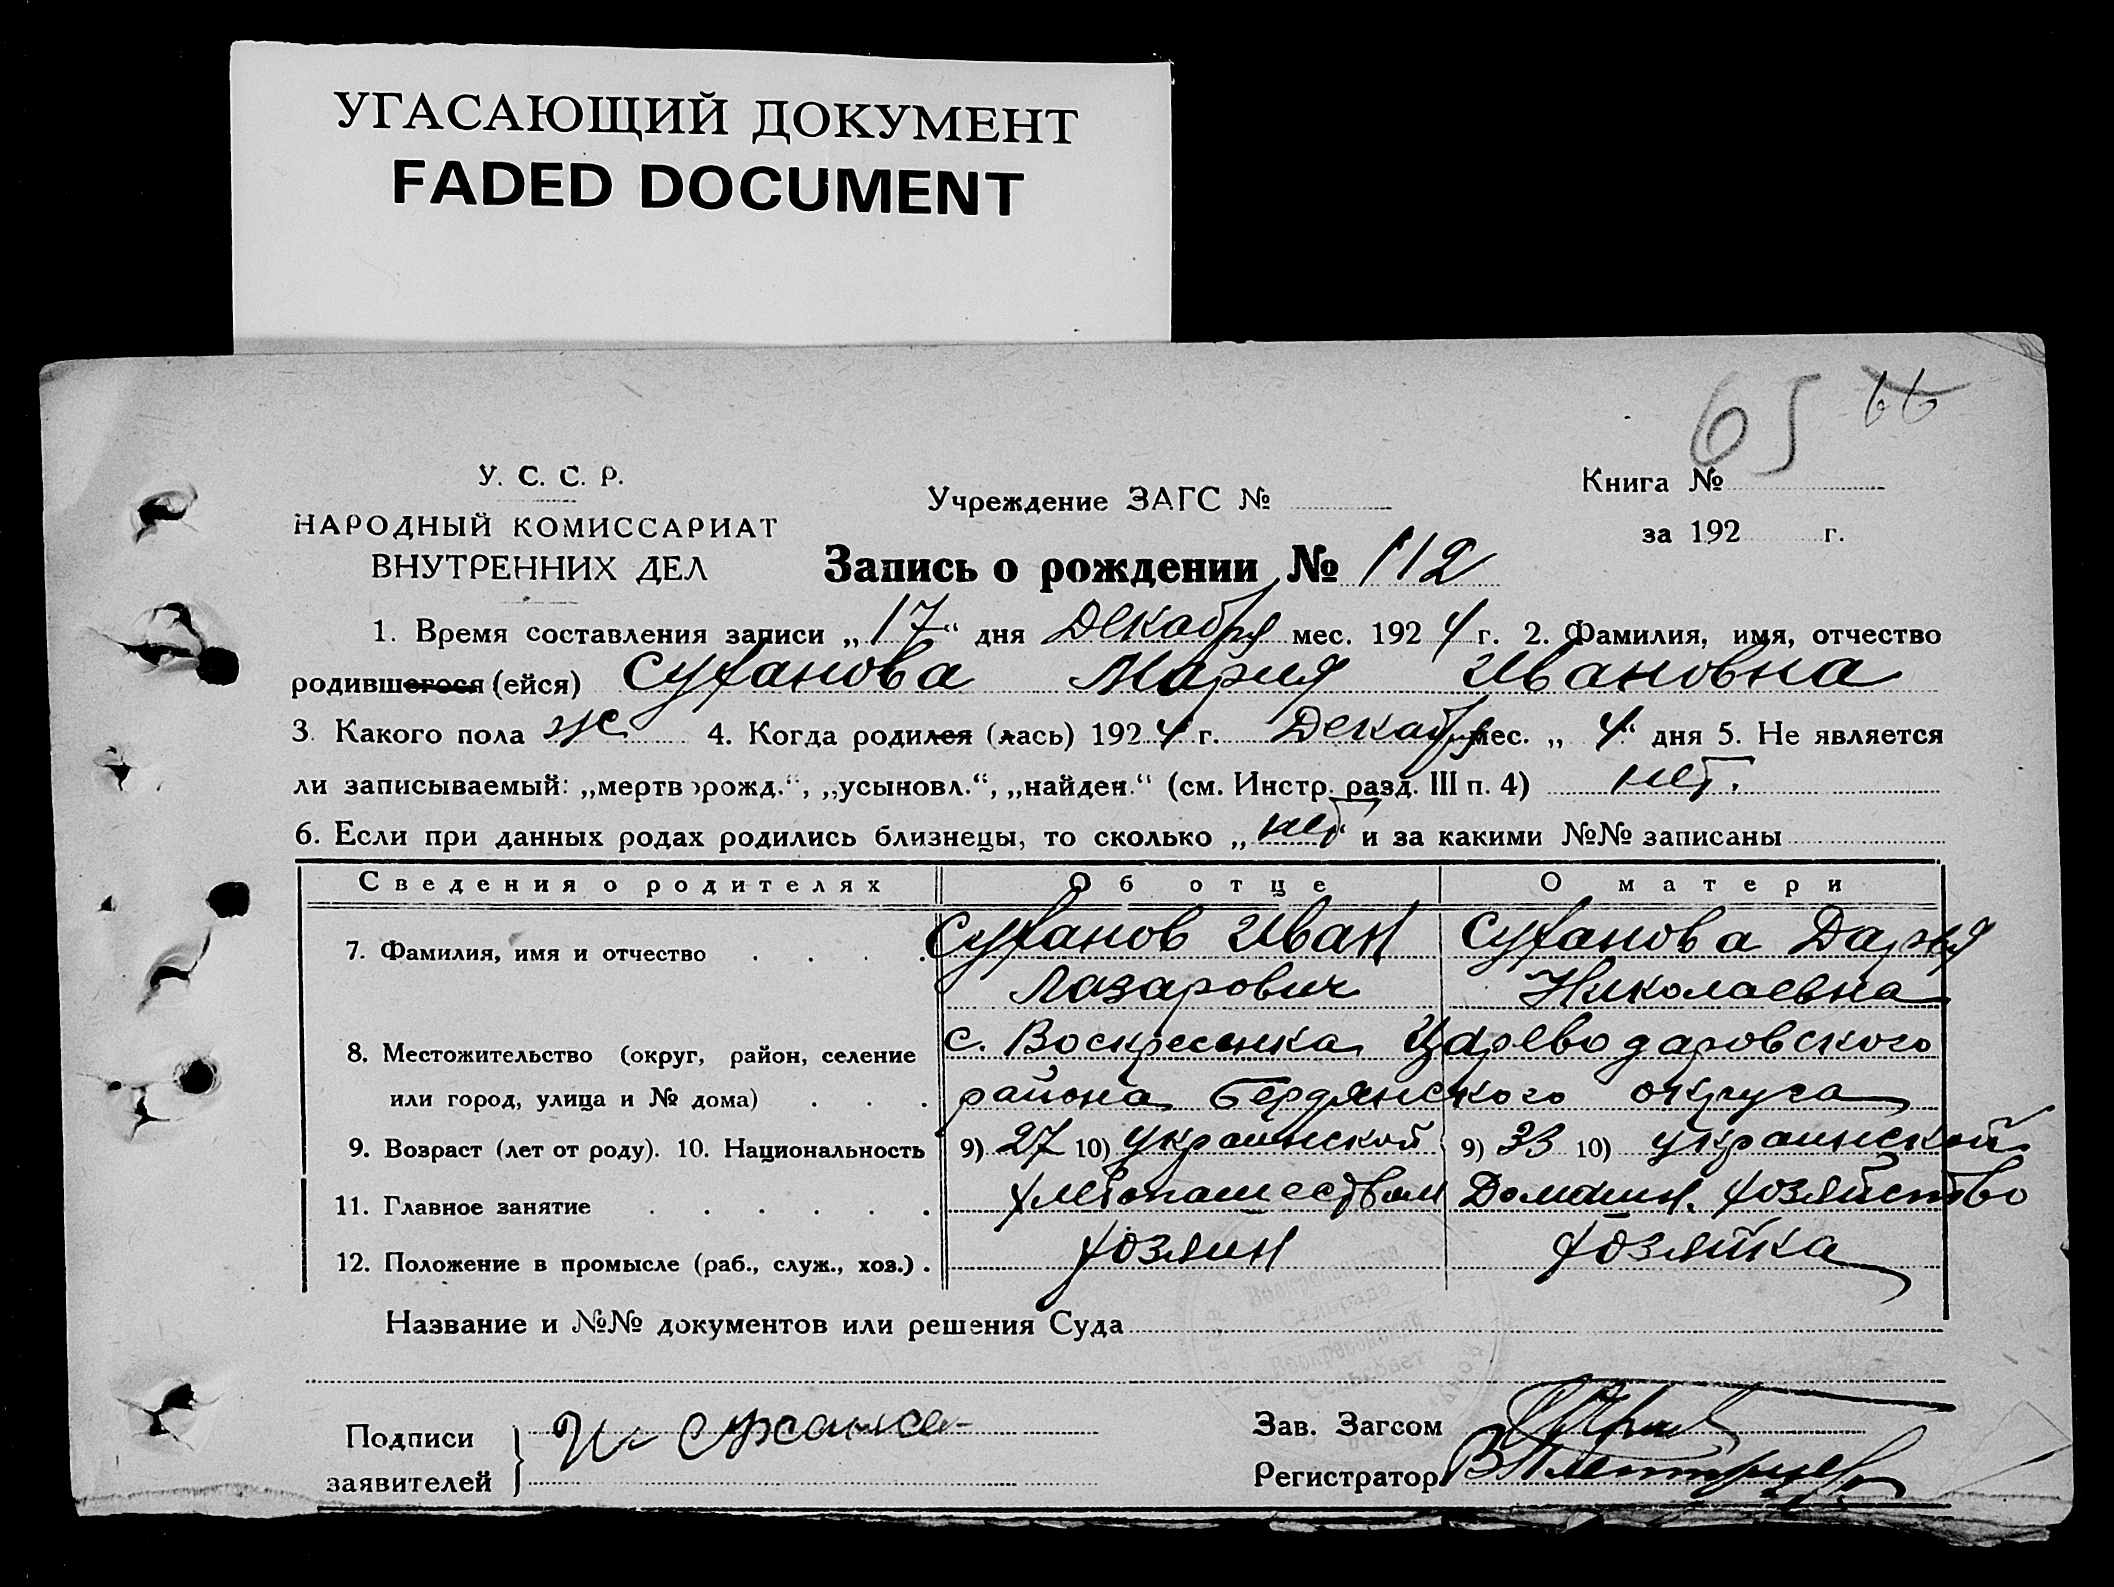 УГАСАЮЩИЙ ДОКУМЕНТ
FADED DOCUMENT
65 66
У. С. С. Р.
НАРОДНЫЙ КОМИССАРИАТ
ВНУТРЕННИХ ДЕЛ
Учреждение ЗАГС №
Книга №
за 192 г.
Запись о рождении № 112
1. Время составления записи „17“ дня Декабря мес. 1924 г. 2. Фамилия, имя, отчество
родившегося (ейся) Суханова Мария Ивановна
3. Какого пола ж 4. Когда родился (лась) 1924 г. Декабря мес. „4“ дня 5. Не является
ли записываемый: „мертворожд.“, „усыновл.“, „найден.“ (см. Инстр. разд. III п. 4) нет.
6. Если при данных родах родились близнецы, то сколько „нет“ и за какими №№ записаны
Сведения о родителях Об отце О матери
7. Фамилия, имя и отчество . . . . Суханов Иван Суханова Дарья
Лазарович Николаевна
8. Местожительство (округ, район, селение с. Воскресенка Цареводаровского
или город, улица и № дома) . . . района Бердянского округа
9. Возраст (лет от роду). 10. Национальность 9) 27 10) украинской 9) 33 10) украинской
11. Главное занятие . . . . . . хлебопашеством Домашн. хозяйство
12. Положение в промысле (раб., служ., хоз.) . хозяин хозяйка
Название и №№ документов или решения Суда
Подписи
заявителей
Зав. Загсом
Регистратор